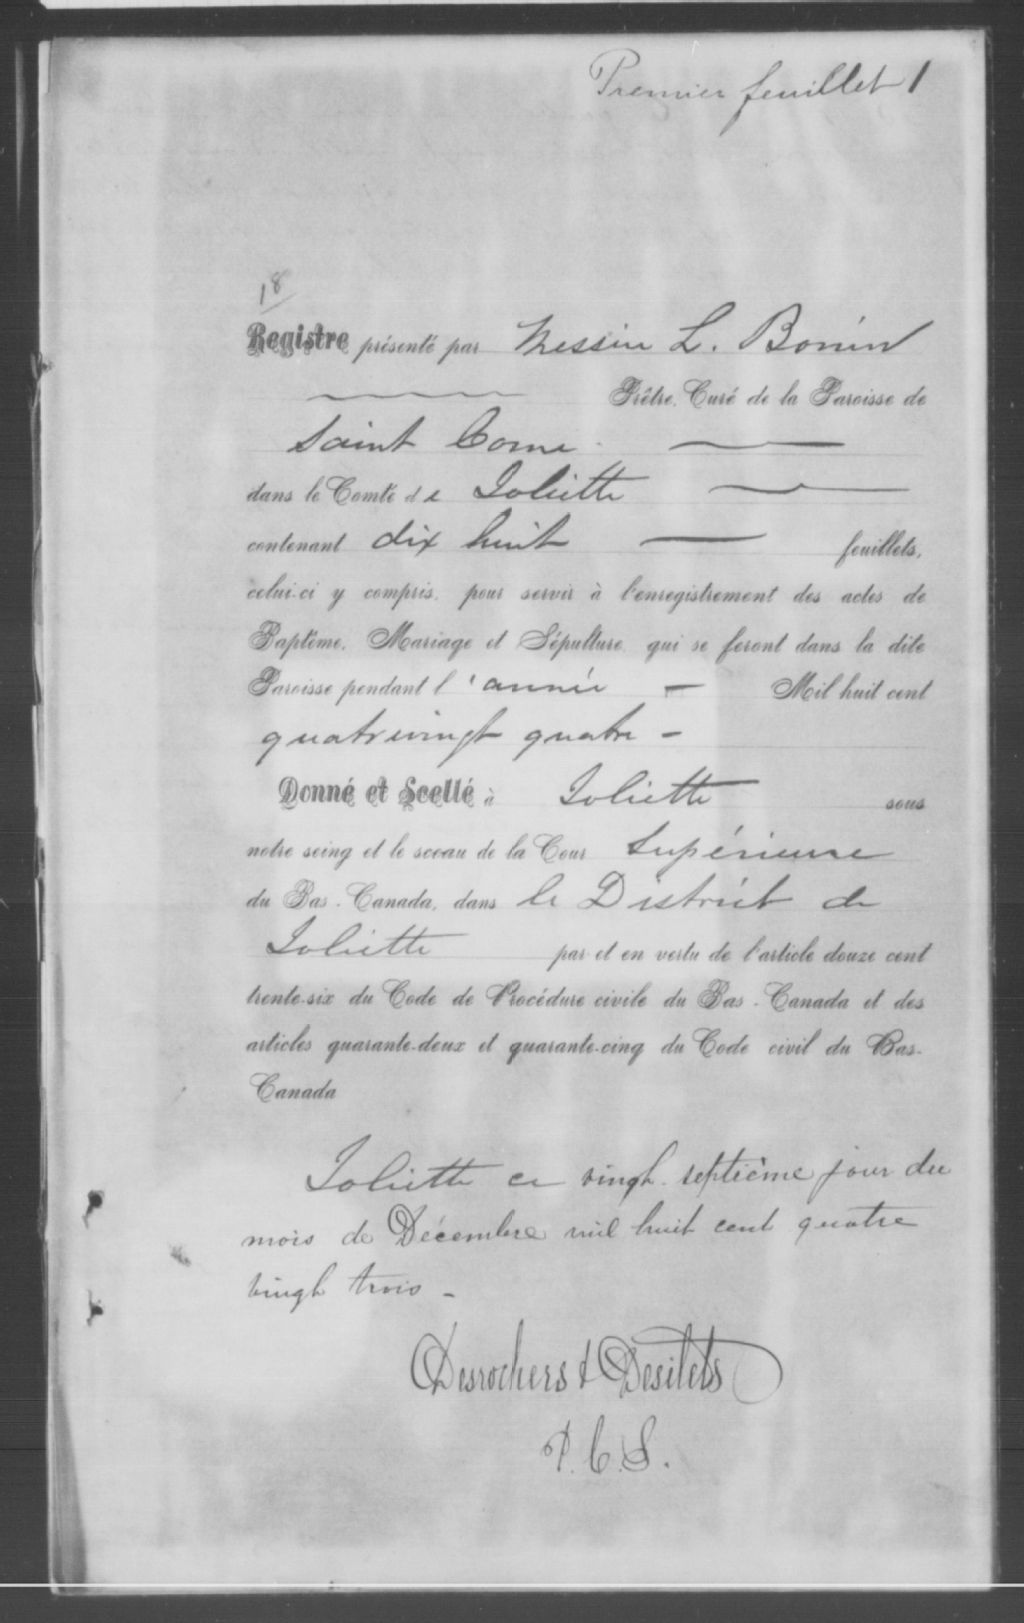 Premier feuillet 1
18
Registre présenté par Messire L. Bonin
Prêtre, Curé de la Paroisse de
Saint Come
dans le Comté de Joliette
contenant dix huit feuillets,
celui-ci y compris, pour servir à l'enregistrement des actes de
Baptême, Mariage et Sépulture, qui se feront dans la dite
Paroisse pendant l'année — Mil huit cent
quatrevingt quatre —
Donné et Scellé à Joliette sous
notre seing et le sceau de la Cour Supérieure
du Bas-Canada, dans le District de
Joliette par et en vertu de l'article douze cent
trente-six du Code de Procédure civile du Bas-Canada et des
articles quarante-deux et quarante-cinq du Code civil du Bas-
Canada
Joliette ce vingt septième jour du
mois de Décembre mil huit cent quatre
vingt trois —
Desrochers & Desilets
P. C. S.